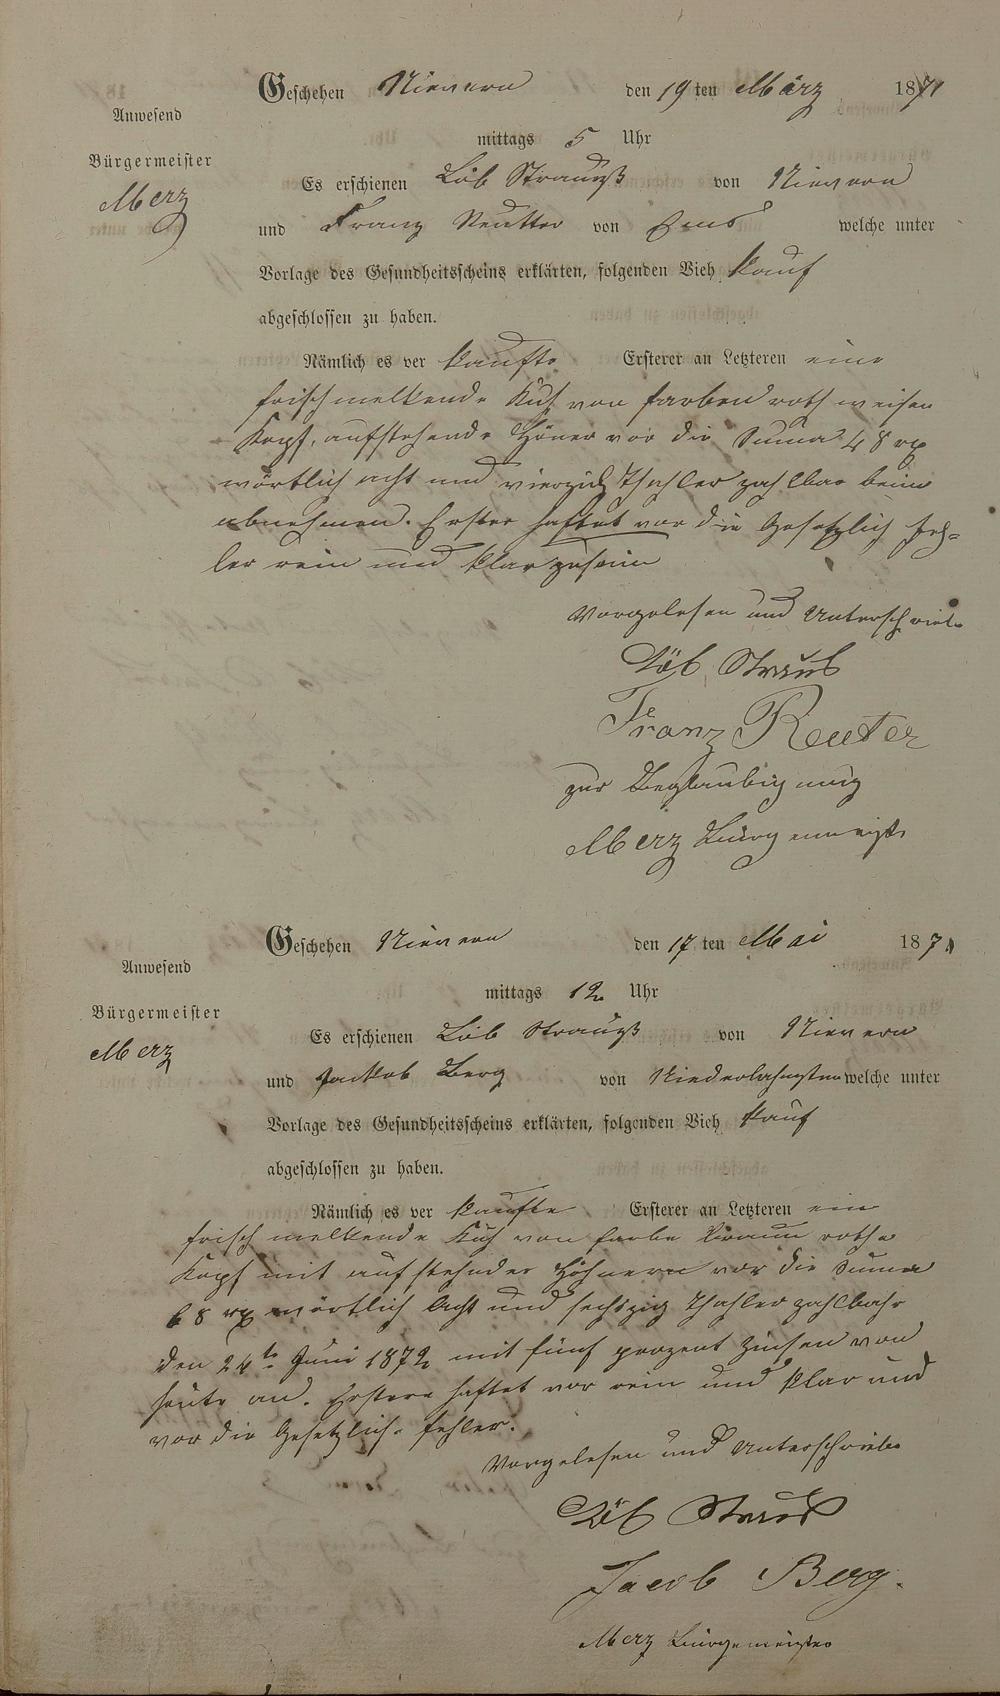 Geschehen Nievern den 19 ten März 1871
Anwesend
mittags 5 Uhr
Bürgermeister
Merz
Es erschienen Löb Strauß von Nievern
und Franz Reutter von Ems welche unter
Vorlage des Gesundheitsscheins erklärten, folgenden Vieh kauf
abgeschlossen zu haben.
Nämlich es ver kaufte Ersterer an Letzteren eine
frisch melkende Kuh von farben roth weisen
Kopf, aufstehende Höner vor die Suma 48 rx
wörtlich acht und vierzich Thahler zahlbar beim
abnehmen. Erster haftet vor die Gesetzlich Feh=
ler rein und klar zu sein
Vorgelesen und Unterschrieb
Löb Straus
Franz Reuter
zur Beglaubigung
Merz Bürgermeister
Geschehen Nievern den 17 ten Mai 1871
Anwesend
mittags 12 Uhr
Bürgermeister
Merz
Es erschienen Löb Strauß von Nievern
und Jackob Berg von Niederlahnstein welche unter
Vorlage des Gesundheitsscheins erklärten, folgenden Vieh kauf
abgeschlossen zu haben.
Nämlich es ver kaufte Ersterer an Letzteren ein
frisch melkende Kuh von farbe braun rothe
Kopf mit aufstehnder Höhnern vor die Suma
68 rx wörtlich Acht und sechszig Thahler zahlbahr
den 24te Juni 1872 mit fünf prozent Zinsen von
heute an. Erstere haftet vor rein und klar und
vor die Gesetzliche fehler.
Vorgelesen und Unterschrieben
Löb Straus
Jacob Berg.
Merz Bürgermeister